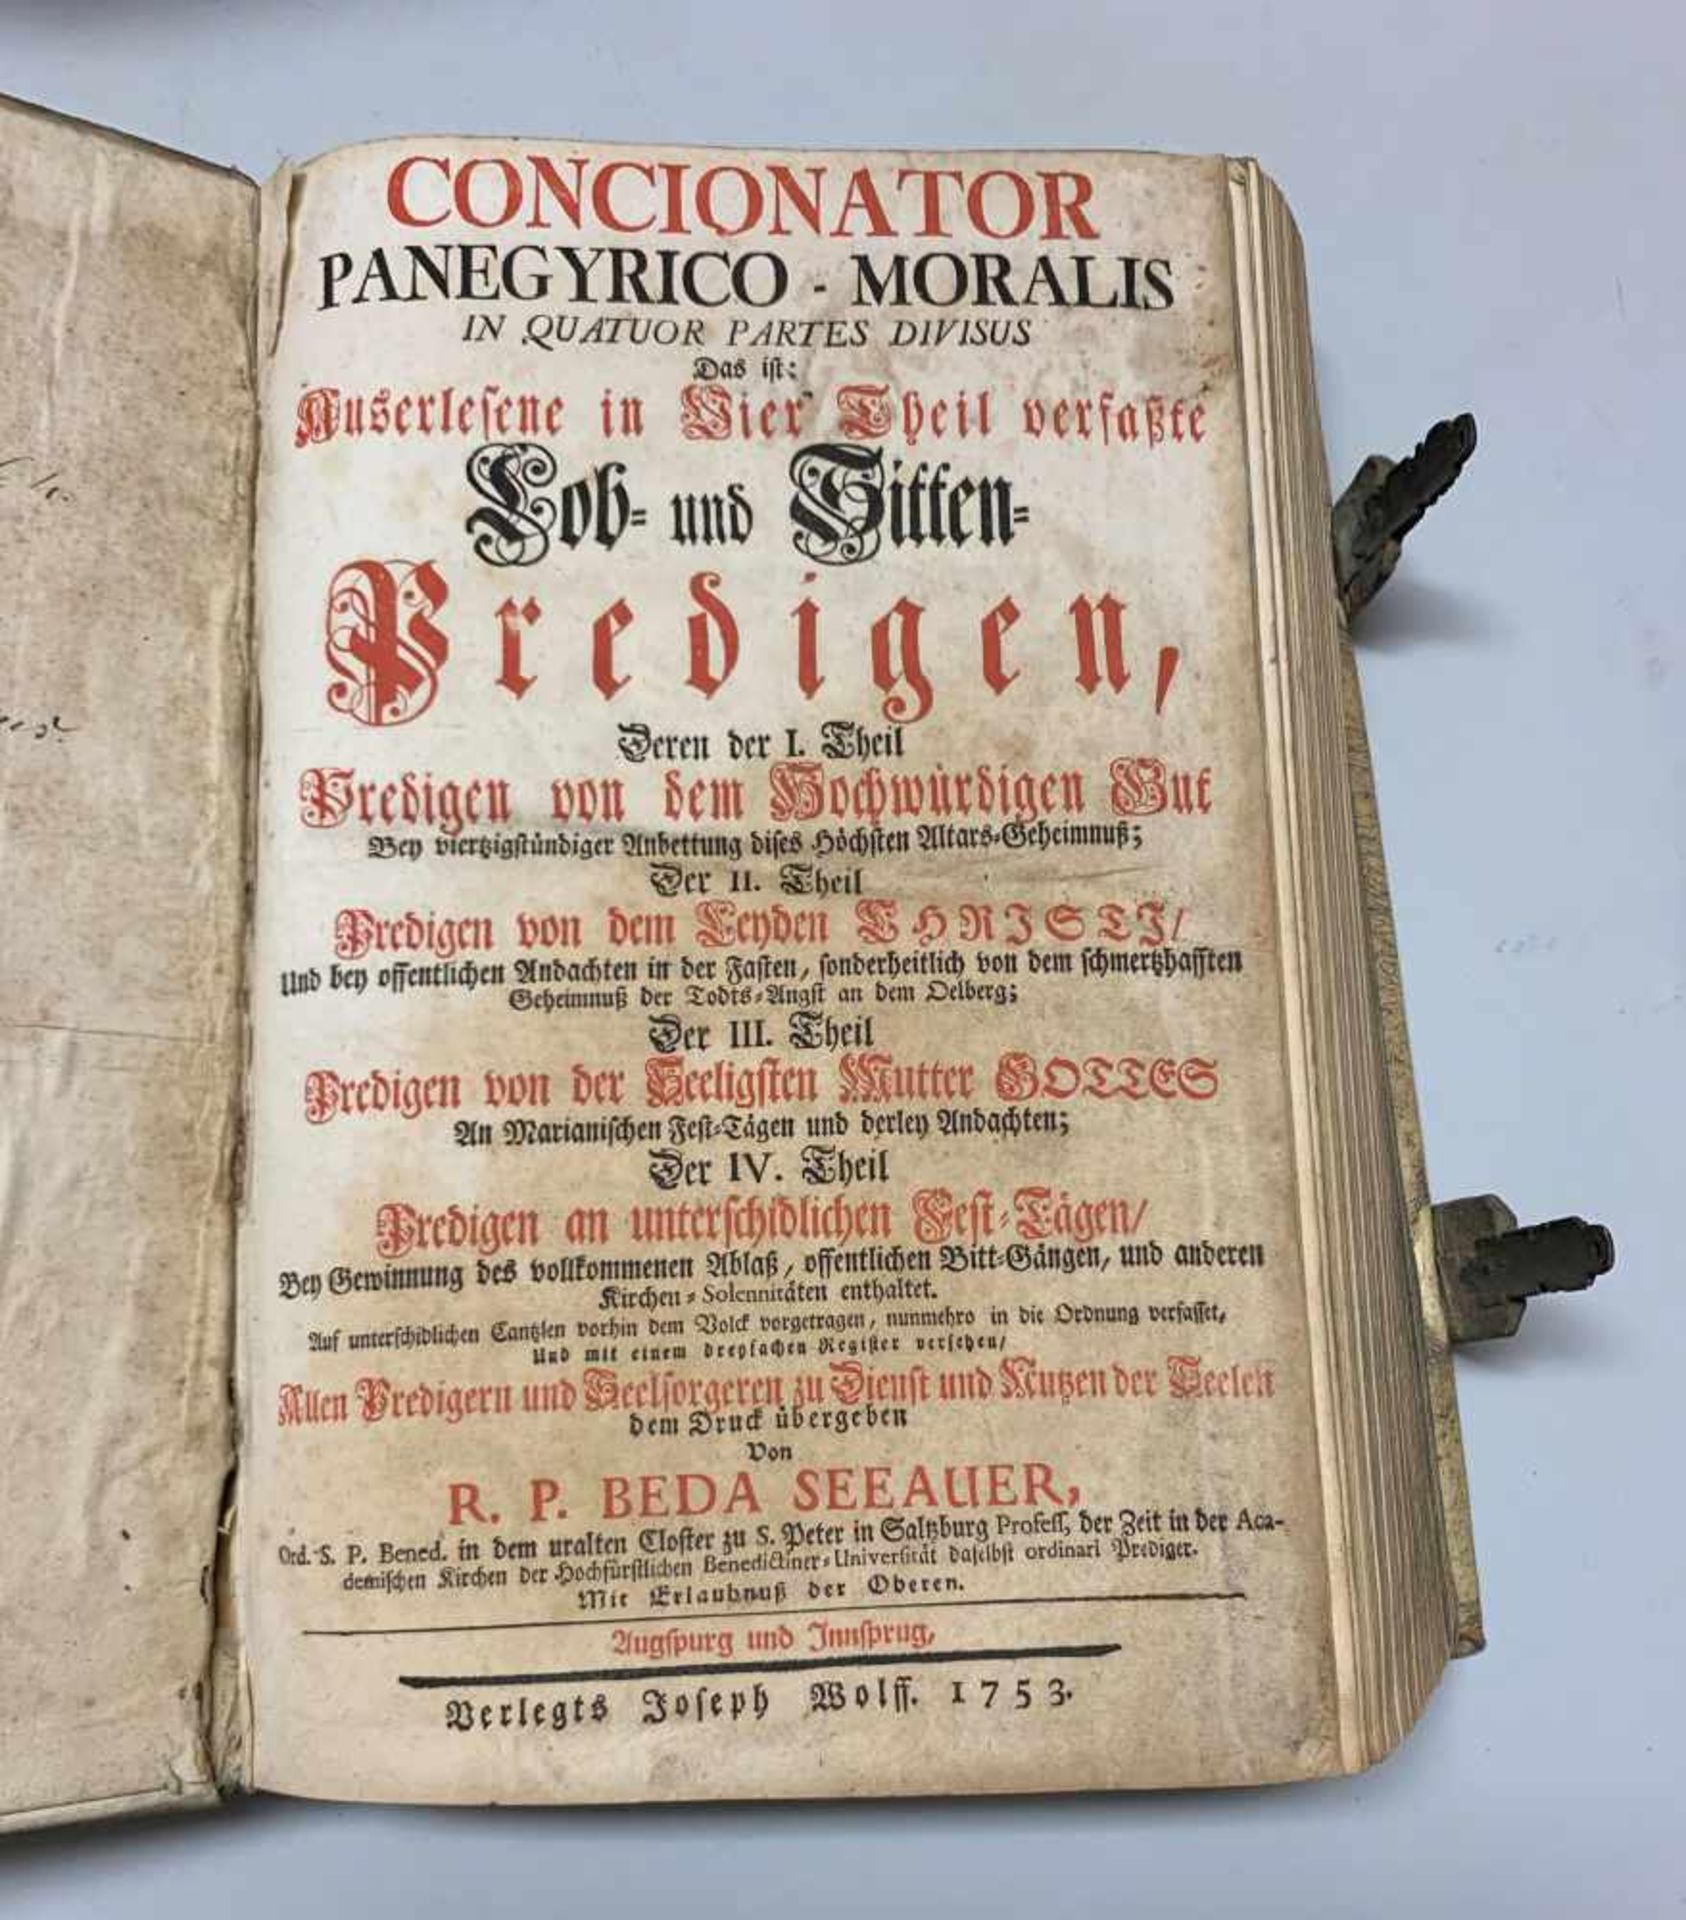 CONCIONATOR
PANEGYRICO - MORALIS
IN QUATUOR PARTES DIVISUS
Das ist:
Auserlesene in Vier Theil verfaßte
Lob- und Sitten-
Predigen,
Deren der I. Theil
Predigen von dem Hochwürdigen Gut
Bey viertzigstündiger Anbettung dises Höchsten Altars-Geheimnuß;
Der II. Theil
Predigen von dem Leyden CHRISTI/
Und bey offentlichen Andachten in der Fasten, sonderheitlich von dem schmertzhafften
Geheimnuß der Todts-Angst an dem Oelberg;
Der III. Theil
Predigen von der Seeligsten Mutter GOTTES
An Marianischen Fest-Tägen und derley Andachten;
Der IV. Theil
Predigen an unterschidlichen Fest-Tägen/
Bey Gewinnung des vollkommenen Ablaß, offentlichen Bitt-Gängen, und anderen
Kirchen-Solennitäten enthaltet.
Auf unterschidlichen Cantzlen vorhin dem Volck vorgetragen, nunmehro in die Ordnung verfasset,
Und mit einem dreyfachen Register versehen/
Allen Predigern und Seelsorgeren zu Dienst und Nutzen der Seelen
dem Druck übergeben
Von
R. P. BEDA SEEAUER,
Ord. S. P. Bened. in dem uralten Closter zu S. Peter in Saltzburg Profess, der Zeit in der Aca-
demischen Kirchen der Hochfürstlichen Benedictiner-Universität daselbst ordinari Prediger.
Mit Erlaubnuß der Oberen.
Augspurg und Innsprug,
Verlegts Joseph Wolff. 1753.